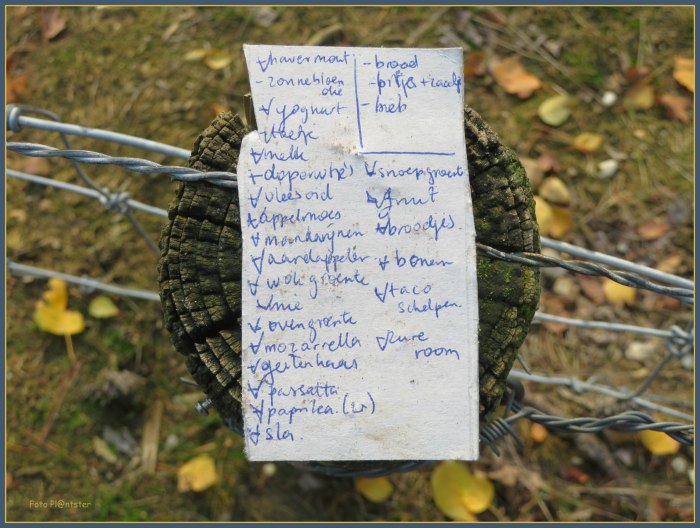 havermout
- zonnebloem
olie
yoghurt
melk
vleesoid
appelmoes
mandarijnen
aardappelen
wokgroente
mie
ovengroente
mozarrella
geitenkaas
passatta
paprika (2x)
sla.
- brood
- pitjes + zaadj
- bieb
snoepgroent
fruit
broodjes.
bonen
taco
schelpen.
zure
room
Foto Pl@ntster